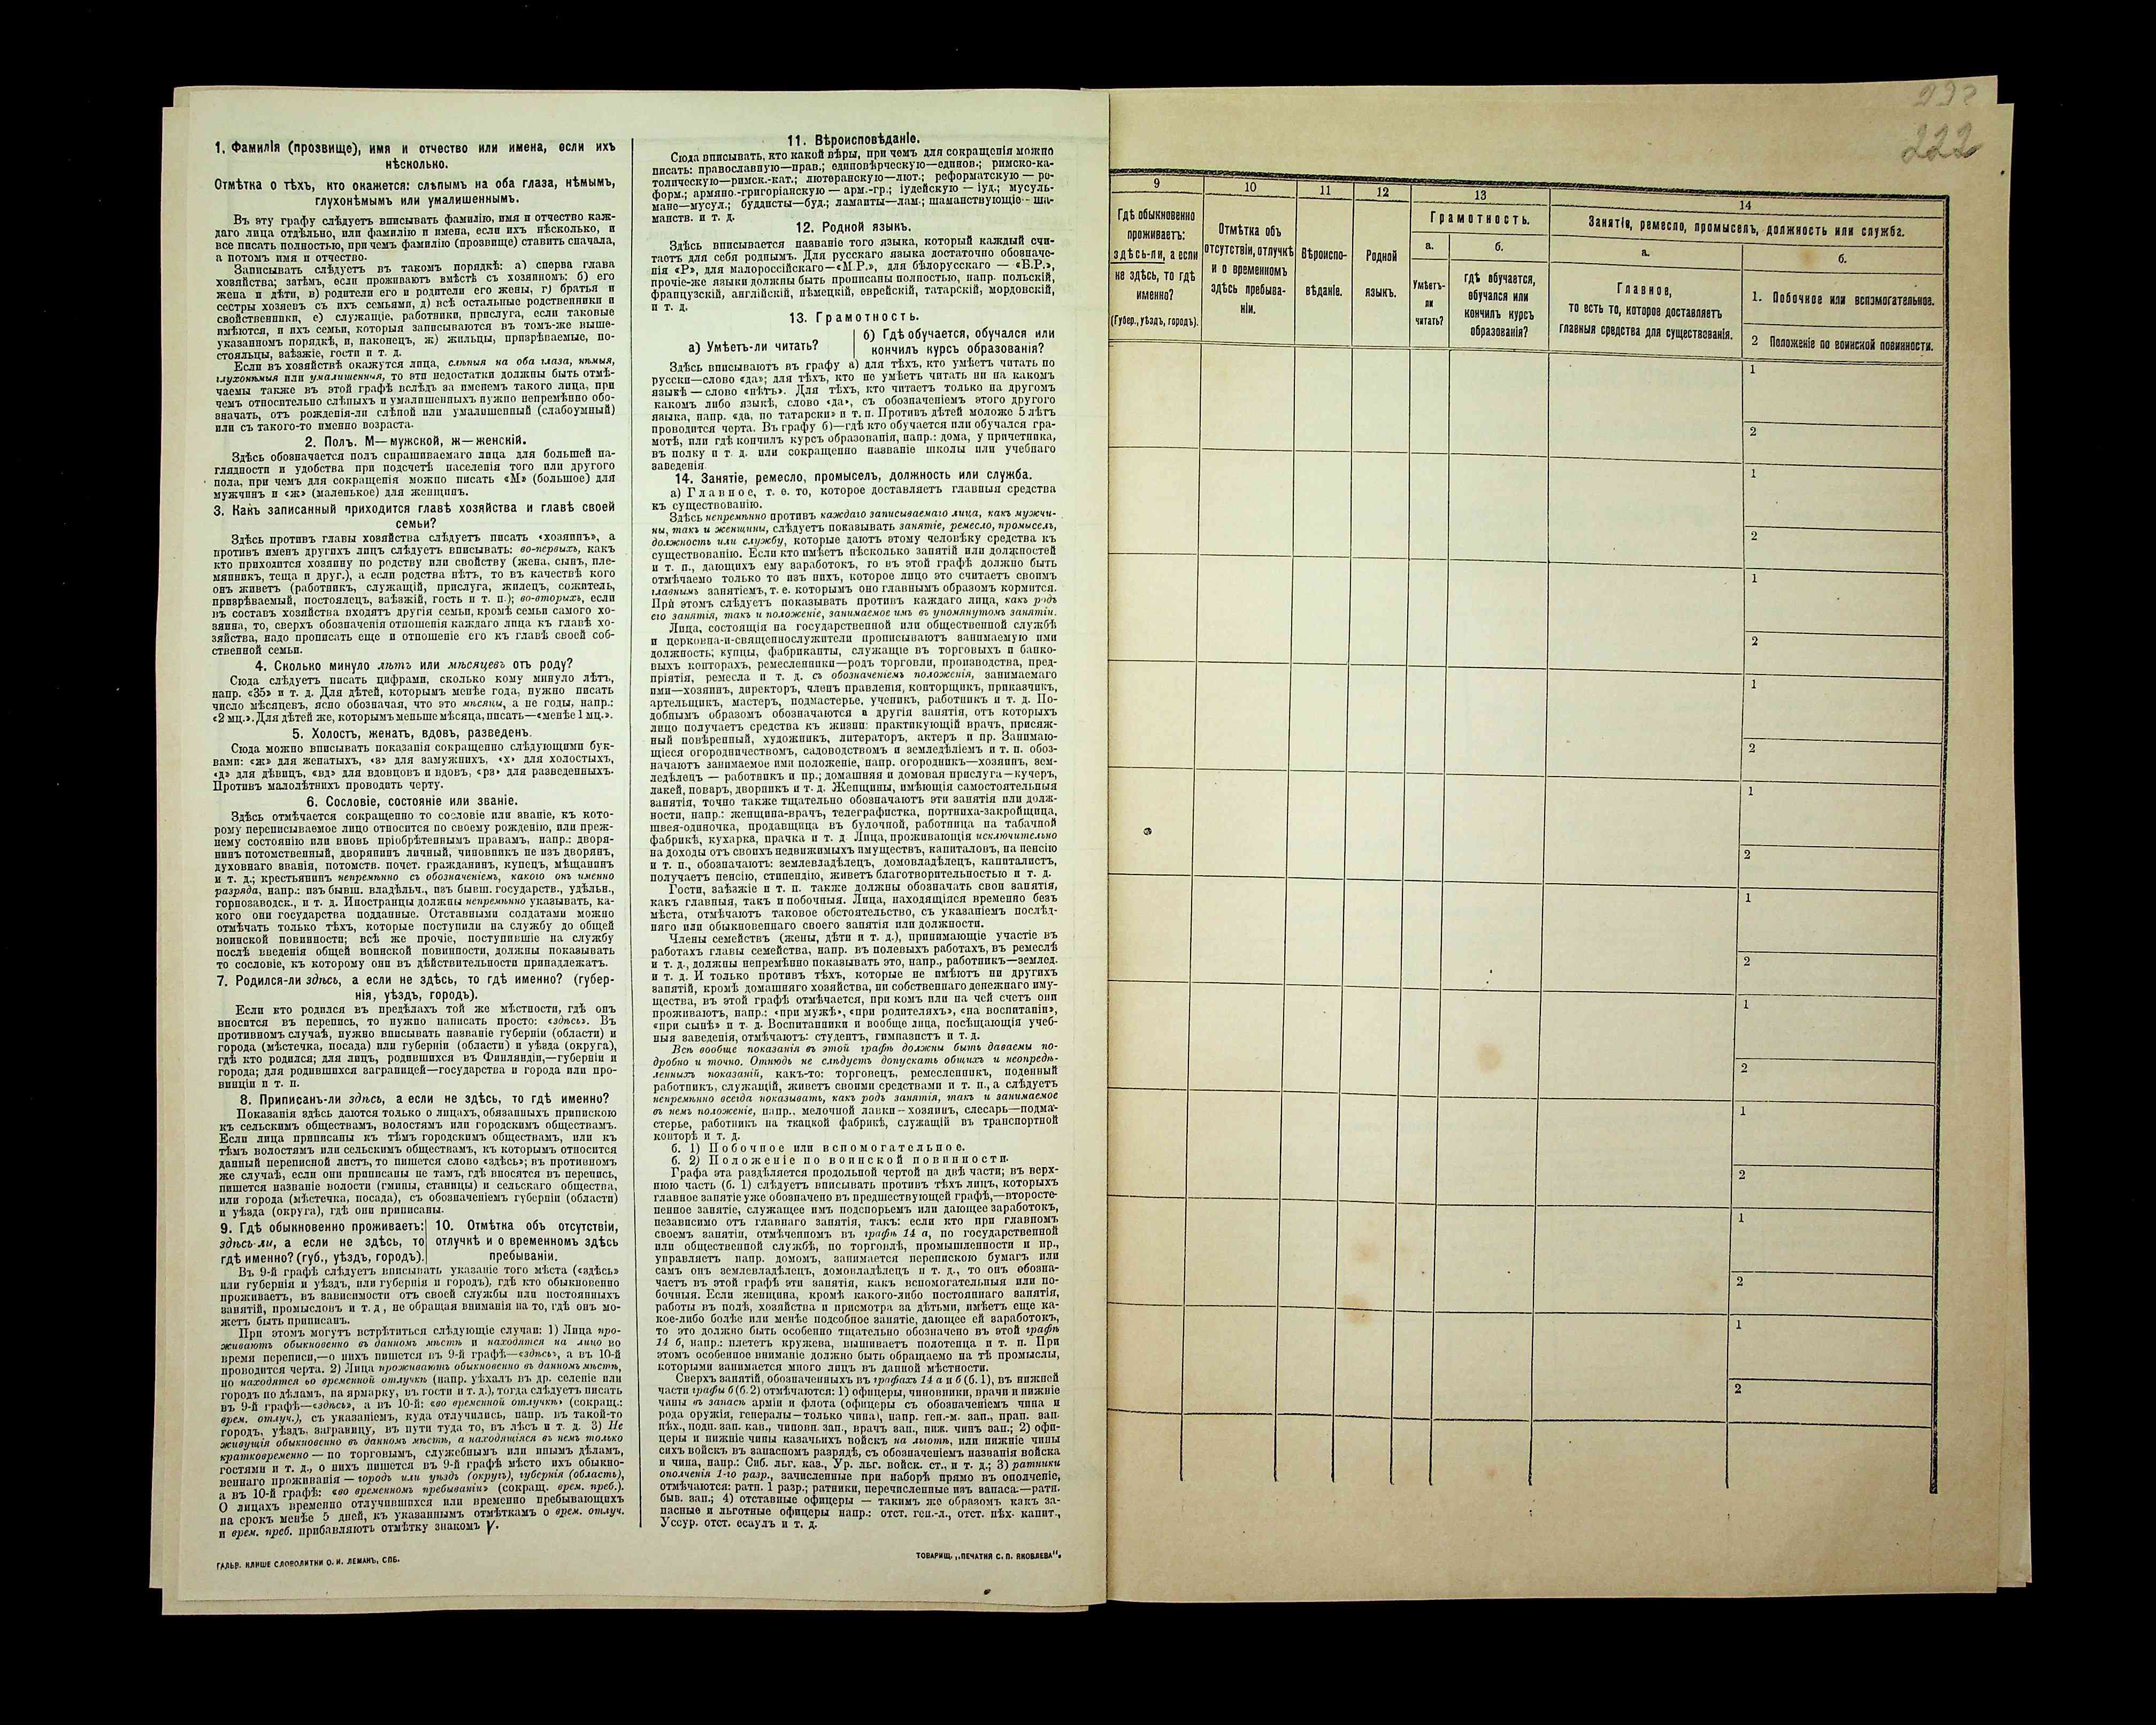 1. Фамилія (прозвище), имя и отчество или имена, если ихъ
нѣсколько.
Отмѣтка о тѣхъ, кто окажется: слѣпымъ на оба глаза, нѣмымъ,
глухонѣмымъ или умалишеннымъ.
Въ эту графу слѣдуетъ вписывать фамилію, имя и отчество каж-
даго лица отдѣльно, или фамилію и имена, если ихъ нѣсколько, и
все писать полностью, при чемъ фамилію (прозвище) ставить сначала,
а потомъ имя и отчество.
Записывать слѣдуетъ въ такомъ порядкѣ: а) сперва глава
хозяйства; затѣмъ, если проживаютъ вмѣстѣ съ хозяиномъ: б) его
жена и дѣти, в) родители его и родители его жены, г) братья и
сестры хозяевъ съ ихъ семьями, д) всѣ остальные родственники и
свойственники, е) служащіе, работники, прислуга, если таковые
имѣются, и ихъ семьи, которыя записываются въ томъ-же выше-
указанномъ порядкѣ, и, наконецъ, ж) жильцы, призрѣваемые, по-
стояльцы, заѣзжіе, гости и т. д.
Если въ хозяйствѣ окажутся лица, слѣпыя на оба глаза, нѣмыя,
глухонѣмыя или умалишенныя, то эти недостатки должны быть отмѣ-
чаемы также въ этой графѣ вслѣдъ за именемъ такого лица, при
чемъ относительно слѣпыхъ и умалишенныхъ нужно непремѣнно обо-
значать, отъ рожденія-ли слѣпой или умалишенный (слабоумный)
или съ такого-то именно возраста.
2. Полъ. М—мужской, ж—женскій.
Здѣсь обозначается полъ спрашиваемаго лица для большей на-
глядности и удобства при подсчетѣ населенія того или другого
пола, при чемъ для сокращенія можно писать «М» (большое) для
мужчинъ и «ж» (маленькое) для женщинъ.
3. Какъ записанный приходится главѣ хозяйства и главѣ своей
семьи?
Здѣсь противъ главы хозяйства слѣдуетъ писать «хозяинъ», а
противъ именъ другихъ лицъ слѣдуетъ вписывать: во-первыхъ, какъ
кто приходится хозяину по родству или свойству (жена, сынъ, пле-
мянникъ, теща и друг.), а если родства нѣтъ, то въ качествѣ кого
онъ живетъ (работникъ, служащій, прислуга, жилецъ, сожитель,
призрѣваемый, постоялецъ, заѣзжій, гость и т. п.); во-вторыхъ, если
въ составъ хозяйства входятъ другія семьи, кромѣ семьи самого хо-
зяина, то, сверхъ обозначенія отношенія каждаго лица къ главѣ хо-
зяйства, надо прописать еще и отношеніе его къ главѣ своей соб-
ственной семьи.
4. Сколько минуло лѣтъ или мѣсяцевъ отъ роду?
Сюда слѣдуетъ писать цифрами, сколько кому минуло лѣтъ,
напр. «35» и т. д. Для дѣтей, которымъ менѣе года, нужно писать
число мѣсяцевъ, ясно обозначая, что это мѣсяцы, а не годы, напр.:
«2 мц.». Для дѣтей же, которымъ меньше мѣсяца, писать—«менѣе 1 мц.».
5. Холостъ, женатъ, вдовъ, разведенъ.
Сюда можно вписывать показанія сокращенно слѣдующими бук-
вами: «ж» для женатыхъ, «з» для замужнихъ, «х» для холостыхъ,
«д» для дѣвицъ, «вд» для вдовцовъ и вдовъ, «рз» для разведенныхъ.
Противъ малолѣтнихъ проводить черту.
6. Сословіе, состояніе или званіе.
Здѣсь отмѣчается сокращенно то сословіе или званіе, къ кото-
рому переписываемое лицо относится по своему рожденію, или преж-
нему состоянію или вновь пріобрѣтеннымъ правамъ, напр.: дворя-
нинъ потомственный, дворянинъ личный, чиновникъ не изъ дворянъ,
духовнаго званія, потомств. почет. гражданинъ, купецъ, мѣщанинъ
и т. д.; крестьянинъ непремѣнно съ обозначеніемъ, какого онъ именно
разряда, напр.: изъ бывш. владѣльч., изъ бывш. государств., удѣльн.,
горнозаводск., и т. д. Иностранцы должны непремѣнно указывать, ка-
кого они государства подданные. Отставными солдатами можно
отмѣчать только тѣхъ, которые поступили на службу до общей
воинской повинности; всѣ же прочіе, поступившіе на службу
послѣ введенія общей воинской повинности, должны показывать
то сословіе, къ которому они въ дѣйствительности принадлежатъ.
7. Родился-ли здѣсь, а если не здѣсь, то гдѣ именно? (губер-
нія, уѣздъ, городъ).
Если кто родился въ предѣлахъ той же мѣстности, гдѣ онъ
вносится въ перепись, то нужно написать просто: «здѣсь». Въ
противномъ случаѣ, нужно вписывать названіе губерніи (области) и
города (мѣстечка, посада) или губерніи (области) и уѣзда (округа),
гдѣ кто родился; для лицъ, родившихся въ Финляндіи,—губерніи и
города; для родившихся заграницей—государства и города или про-
винціи и т. п.
8. Приписанъ-ли здѣсь, а если не здѣсь, то гдѣ именно?
Показанія здѣсь даются только о лицахъ, обязанныхъ припискою
къ сельскимъ обществамъ, волостямъ или городскимъ обществамъ.
Если лица приписаны къ тѣмъ городскимъ обществамъ, или къ
тѣмъ волостямъ или сельскимъ обществамъ, къ которымъ относится
данный переписной листъ, то пишется слово «здѣсь»; въ противномъ
же случаѣ, если они приписаны не тамъ, гдѣ вносятся въ перепись,
пишется названіе волости (гмины, станицы) и сельскаго общества,
или города (мѣстечка, посада), съ обозначеніемъ губерніи (области)
и уѣзда (округа), гдѣ они приписаны.
9. Гдѣ обыкновенно проживаетъ:
здѣсь-ли, а если не здѣсь, то
гдѣ именно? (губ., уѣздъ, городъ).
10. Отмѣтка объ отсутствіи,
отлучкѣ и о временномъ здѣсь
пребываніи.
Въ 9-й графѣ слѣдуетъ вписывать указаніе того мѣста («здѣсь»
или губернія и уѣздъ, или губернія и городъ), гдѣ кто обыкновенно
проживаетъ, въ зависимости отъ своей службы или постоянныхъ
занятій, промысловъ и т. д, не обращая вниманія на то, гдѣ онъ мо-
жетъ быть приписанъ.
При этомъ могутъ встрѣтиться слѣдующіе случаи: 1) Лица про-
живаютъ обыкновенно въ данномъ мѣстѣ и находятся на лицо во
время переписи,—о нихъ пишется въ 9-й графѣ—«здѣсь», а въ 10-й
проводится черта. 2) Лица проживаютъ обыкновенно въ данномъ мѣстѣ,
но находятся во временной отлучкѣ (напр. уѣхалъ въ др. селеніе или
городъ по дѣламъ, на ярмарку, въ гости и т. д.), тогда слѣдуетъ писать
въ 9-й графѣ—«здѣсь», а въ 10-й: «во временной отлучкѣ» (сокращ.:
врем. отлуч.), съ указаніемъ, куда отлучились, напр. въ такой-то
городъ, уѣздъ, заграницу, въ пути туда то, въ лѣсъ и т. д. 3) Не
живущія обыкновенно въ данномъ мѣстѣ, а находящіяся въ немъ только
кратковременно — по торговымъ, служебнымъ или инымъ дѣламъ,
гостями и т. д., о нихъ пишется въ 9-й графѣ мѣсто ихъ обыкно-
веннаго проживанія — городъ или уѣздъ (округъ), губернія (область),
а въ 10-й графѣ: «во временномъ пребываніи» (сокращ. врем. преб.).
О лицахъ временно отлучившихся или временно пребывающихъ
на срокъ менѣе 5 дней, къ указаннымъ отмѣткамъ о врем. отлуч.
и врем. преб. прибавляютъ отмѣтку знакомъ V.
ГАЛЬВ. КЛИШЕ СЛОВОЛИТНИ О. И. ЛЕМАНЪ, СПБ.
11. Вѣроисповѣданіе.
Сюда вписывать, кто какой вѣры, при чемъ для сокращенія можно
писать: православную—прав.; единовѣрческую—единов.; римско-ка-
толическую—римск.-кат.; лютеранскую—лют.; реформатскую — ре-
форм.; армяно.-григоріанскую — арм.-гр.; іудейскую — іуд.; мусуль-
мане—мусул.; буддисты—буд.; ламаиты—лам.; шаманствующіе—ша-
манств. и т. д.
12. Родной языкъ.
Здѣсь вписывается названіе того языка, который каждый счи-
таетъ для себя роднымъ. Для русскаго языка достаточно обозначе-
нія «Р», для малороссійскаго—«М.Р.», для бѣлорусскаго — «Б.Р.»,
прочіе-же языки должны быть прописаны полностью, напр. польскій,
французскій, англійскій, нѣмецкій, еврейскій, татарскій, мордовскій,
и т. д.
13. Грамотность.
а) Умѣетъ-ли читать?
б) Гдѣ обучается, обучался или
кончилъ курсъ образованія?
Здѣсь вписываютъ въ графу а) для тѣхъ, кто умѣетъ читать по
русски—слово «да»; для тѣхъ, кто не умѣетъ читать ни на какомъ
языкѣ — слово «нѣтъ». Для тѣхъ, кто читаетъ только на другомъ
какомъ либо языкѣ, слово «да», съ обозначеніемъ этого другого
языка, напр. «да, по татарски» и т. п. Противъ дѣтей моложе 5 лѣтъ
проводится черта. Въ графу б)—гдѣ кто обучается или обучался гра-
мотѣ, или гдѣ кончилъ курсъ образованія, напр.: дома, у причетника,
въ полку и т. д. или сокращенно названіе школы или учебнаго
заведенія
14. Занятіе, ремесло, промыселъ, должность или служба.
а) Главное, т. е. то, которое доставляетъ главныя средства
къ существованію.
Здѣсь непремѣнно противъ каждаго записываемаго лица, какъ мужчи-
ны, такъ и женщины, слѣдуетъ показывать занятіе, ремесло, промыселъ,
должность или службу, которые даютъ этому человѣку средства къ
существованію. Если кто имѣетъ нѣсколько занятій или должностей
и т. п., дающихъ ему заработокъ, то въ этой графѣ должно быть
отмѣчаемо только то изъ нихъ, которое лицо это считаетъ своимъ
главнымъ занятіемъ, т. е. которымъ оно главнымъ образомъ кормится.
При этомъ слѣдуетъ показывать противъ каждаго лица, какъ родъ
его занятія, такъ и положеніе, занимаемое имъ въ упомянутомъ занятіи.
Лица, состоящія на государственной или общественной службѣ
и церковно-и-священнослужители прописываютъ занимаемую ими
должность; купцы, фабриканты, служащіе въ торговыхъ и банко-
выхъ конторахъ, ремесленники—родъ торговли, производства, пред-
пріятія, ремесла и т. д. съ обозначеніемъ положенія, занимаемаго
ими—хозяинъ, директоръ, членъ правленія, конторщикъ, приказчикъ,
артельщикъ, мастеръ, подмастерье, ученикъ, работникъ и т. д. По-
добнымъ образомъ обозначаются и другія занятія, отъ которыхъ
лицо получаетъ средства къ жизни: практикующій врачъ, присяж-
ный повѣренный, художникъ, литераторъ, актеръ и пр. Занимаю-
щіеся огородничествомъ, садоводствомъ и земледѣліемъ и т. п. обоз-
начаютъ занимаемое ими положеніе, напр. огородникъ—хозяинъ, зем-
ледѣлецъ — работникъ и пр.; домашняя и домовая прислуга—кучеръ,
лакей, поваръ, дворникъ и т. д. Женщины, имѣющія самостоятельныя
занятія, точно также тщательно обозначаютъ эти занятія или долж-
ности, напр.: женщина-врачъ, телеграфистка, портниха-закройщица,
швея-одиночка, продавщица въ булочной, работница на табачной
фабрикѣ, кухарка, прачка и т. д Лица, проживающія исключительно
на доходы отъ своихъ недвижимыхъ имуществъ, капиталовъ, на пенсію
и т. п., обозначаютъ: землевладѣлецъ, домовладѣлецъ, капиталистъ,
получаетъ пенсію, стипендію, живетъ благотворительностью и т. д.
Гости, заѣзжіе и т. п. также должны обозначать свои занятія,
какъ главныя, такъ и побочныя. Лица, находящіяся временно безъ
мѣста, отмѣчаютъ таковое обстоятельство, съ указаніемъ послѣд-
няго или обыкновеннаго своего занятія или должности.
Члены семействъ (жены, дѣти и т. д.), принимающіе участіе въ
работахъ главы семейства, напр. въ полевыхъ работахъ, въ ремеслѣ
и т. д., должны непремѣнно показывать это, напр., работникъ—землед.
и т. д. И только противъ тѣхъ, которые не имѣютъ ни другихъ
занятій, кромѣ домашняго хозяйства, ни собственнаго денежнаго иму-
щества, въ этой графѣ отмѣчается, при комъ или на чей счетъ они
проживаютъ, напр.: «при мужѣ», «при родителяхъ», «на воспитаніи»,
«при сынѣ» и т. д. Воспитанники и вообще лица, посѣщающія учеб-
ныя заведенія, отмѣчаютъ: студентъ, гимназистъ и т. д.
Всѣ вообще показанія въ этой графѣ должны быть даваемы по-
дробно и точно. Отнюдь не слѣдуетъ допускать общихъ и неопредѣ-
ленныхъ показаній, какъ-то: торговецъ, ремесленникъ, поденный
работникъ, служащій, живетъ своими средствами и т. п., а слѣдуетъ
непремѣнно всегда показывать, какъ родъ занятія, такъ и занимаемое
въ немъ положеніе, напр., мелочной лавки—хозяинъ, слесарь—подма-
стерье, работникъ на ткацкой фабрикѣ, служащій въ транспортной
конторѣ и т. д.
б. 1) Побочное или вспомогательное.
б. 2) Положеніе по воинской повинности.
Графа эта раздѣляется продольной чертой на двѣ части; въ верх-
нюю часть (б. 1) слѣдуетъ вписывать противъ тѣхъ лицъ, которыхъ
главное занятіе уже обозначено въ предшествующей графѣ,—второсте-
пенное занятіе, служащее имъ подспорьемъ или дающее заработокъ,
независимо отъ главнаго занятія, такъ: если кто при главномъ
своемъ занятіи, отмѣченномъ въ графѣ 14 а, по государственной
или общественной службѣ, по торговлѣ, промышленности и пр.,
управляетъ напр. домомъ, занимается перепискою бумагъ или
самъ онъ землевладѣлецъ, домовладѣлецъ и т. д., то онъ обозна-
чаетъ въ этой графѣ эти занятія, какъ вспомогательныя или по-
бочныя. Если женщина, кромѣ какого-либо постояннаго занятія,
работы въ полѣ, хозяйства и присмотра за дѣтьми, имѣетъ еще ка-
кое-либо болѣе или менѣе подсобное занятіе, дающее ей заработокъ,
то это должно быть особенно тщательно обозначено въ этой графѣ
14 б, напр.: плететъ кружева, вышиваетъ полотенца и т. п. При
этомъ особенное вниманіе должно быть обращаемо на тѣ промыслы,
которыми занимается много лицъ въ данной мѣстности.
Сверхъ занятій, обозначенныхъ въ графахъ 14 а и б (б. 1), въ нижней
части графы б (б. 2) отмѣчаются: 1) офицеры, чиновники, врачи и нижніе
чины въ запасѣ арміи и флота (офицеры съ обозначеніемъ чина и
рода оружія, генералы—только чина), напр. ген.-м. зап., прап. зап.
пѣх., подп. зап. кав., чиновн. зап., врачъ зап., ниж. чинъ зап.; 2) офи-
церы и нижніе чины казачьихъ войскъ на льготѣ, или нижніе чины
сихъ войскъ въ запасномъ разрядѣ, съ обозначеніемъ названія войска
и чина, напр.: Сиб. льг. каз., Ур. льг. войск. ст., и т. д.; 3) ратники
ополченія 1-го разр., зачисленные при наборѣ прямо въ ополченіе,
отмѣчаются: ратн. 1 разр.; ратники, перечисленные изъ запаса.—ратн.
быв. зап.; 4) отставные офицеры — такимъ же образомъ какъ за-
пасные и льготные офицеры напр.: отст. ген.-л., отст. пѣх. капит.,
Уссур. отст. есаулъ и т. д.
ТОВАРИЩ. „ПЕЧАТНЯ С. П. ЯКОВЛЕВА".
222
9
10
11
12
13
14
Гдѣ обыкновенно
проживаетъ:
здѣсь-ли, а если
не здѣсь, то гдѣ
именно?
(Губер., уѣздъ, городъ).
Отмѣтка объ
отсутствіи, отлучкѣ
и о временномъ
здѣсь пребыва-
ніи.
Вѣроиспо-
вѣданіе.
Родной
языкъ.
Грамотность.
а.
Умѣетъ-
ли
читать?
б.
гдѣ обучается,
обучался или
кончилъ курсъ
образованія?
Занятіе, ремесло, промыселъ, должность или служба.
а.
Главное,
то есть то, которое доставляетъ
главныя средства для существованія.
б.
1. Побочное или вспомогательное.
2 Положеніе по воинской повинности.
1
2
1
2
1
2
1
2
1
2
1
2
1
2
1
2
1
2
1
2